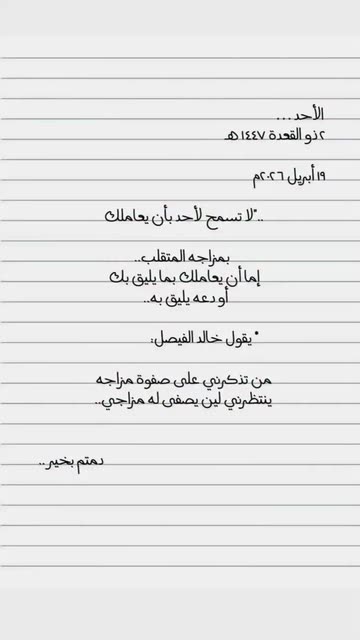 الأحد...
٢ ذو القعدة ١٤٤٧ هـ
١٩ أبريل ٢٠٢٦م
.."لا تسمح لأحد بأن يعاملك
بمزاجه المتقلب..
إما أن يعاملك بما يليق بك
أو دعه يليق به..
* يقول خالد الفيصل:
من تذكرني على صفوة مزاجه
ينتظرني لين يصفى له مزاجي..
دمتم بخير..